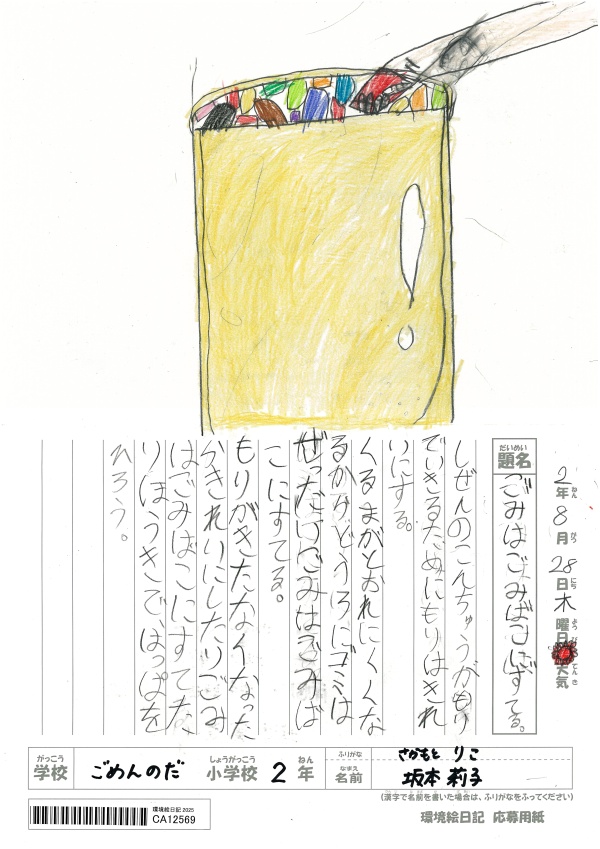 2年8月28日木曜日天気
ねん がつ にち よう び てんき
題名 ごみはごみばこにすてる。
だいめい
しぜんのこんちゅうがもり
でいきるためにもりはきれ
いにする。
くるまがとおれにくくな
るからどうろにゴミは
ぜったいごみはごみば
こにすてる。
もりがきたなくなった
らきれいにしたりごみ
はごみばこにすてた
りほうきで、はっぱを
ひろう。
がっこう しょうがっこう ねん ふりがな さかもと りこ
学校 ごめんのだ 小学校 2 年 名前 坂本 莉子
なまえ
(漢字で名前を書いた場合は、ふりがなをふってください)
環境絵日記 2025
CA12569
環境絵日記 応募用紙